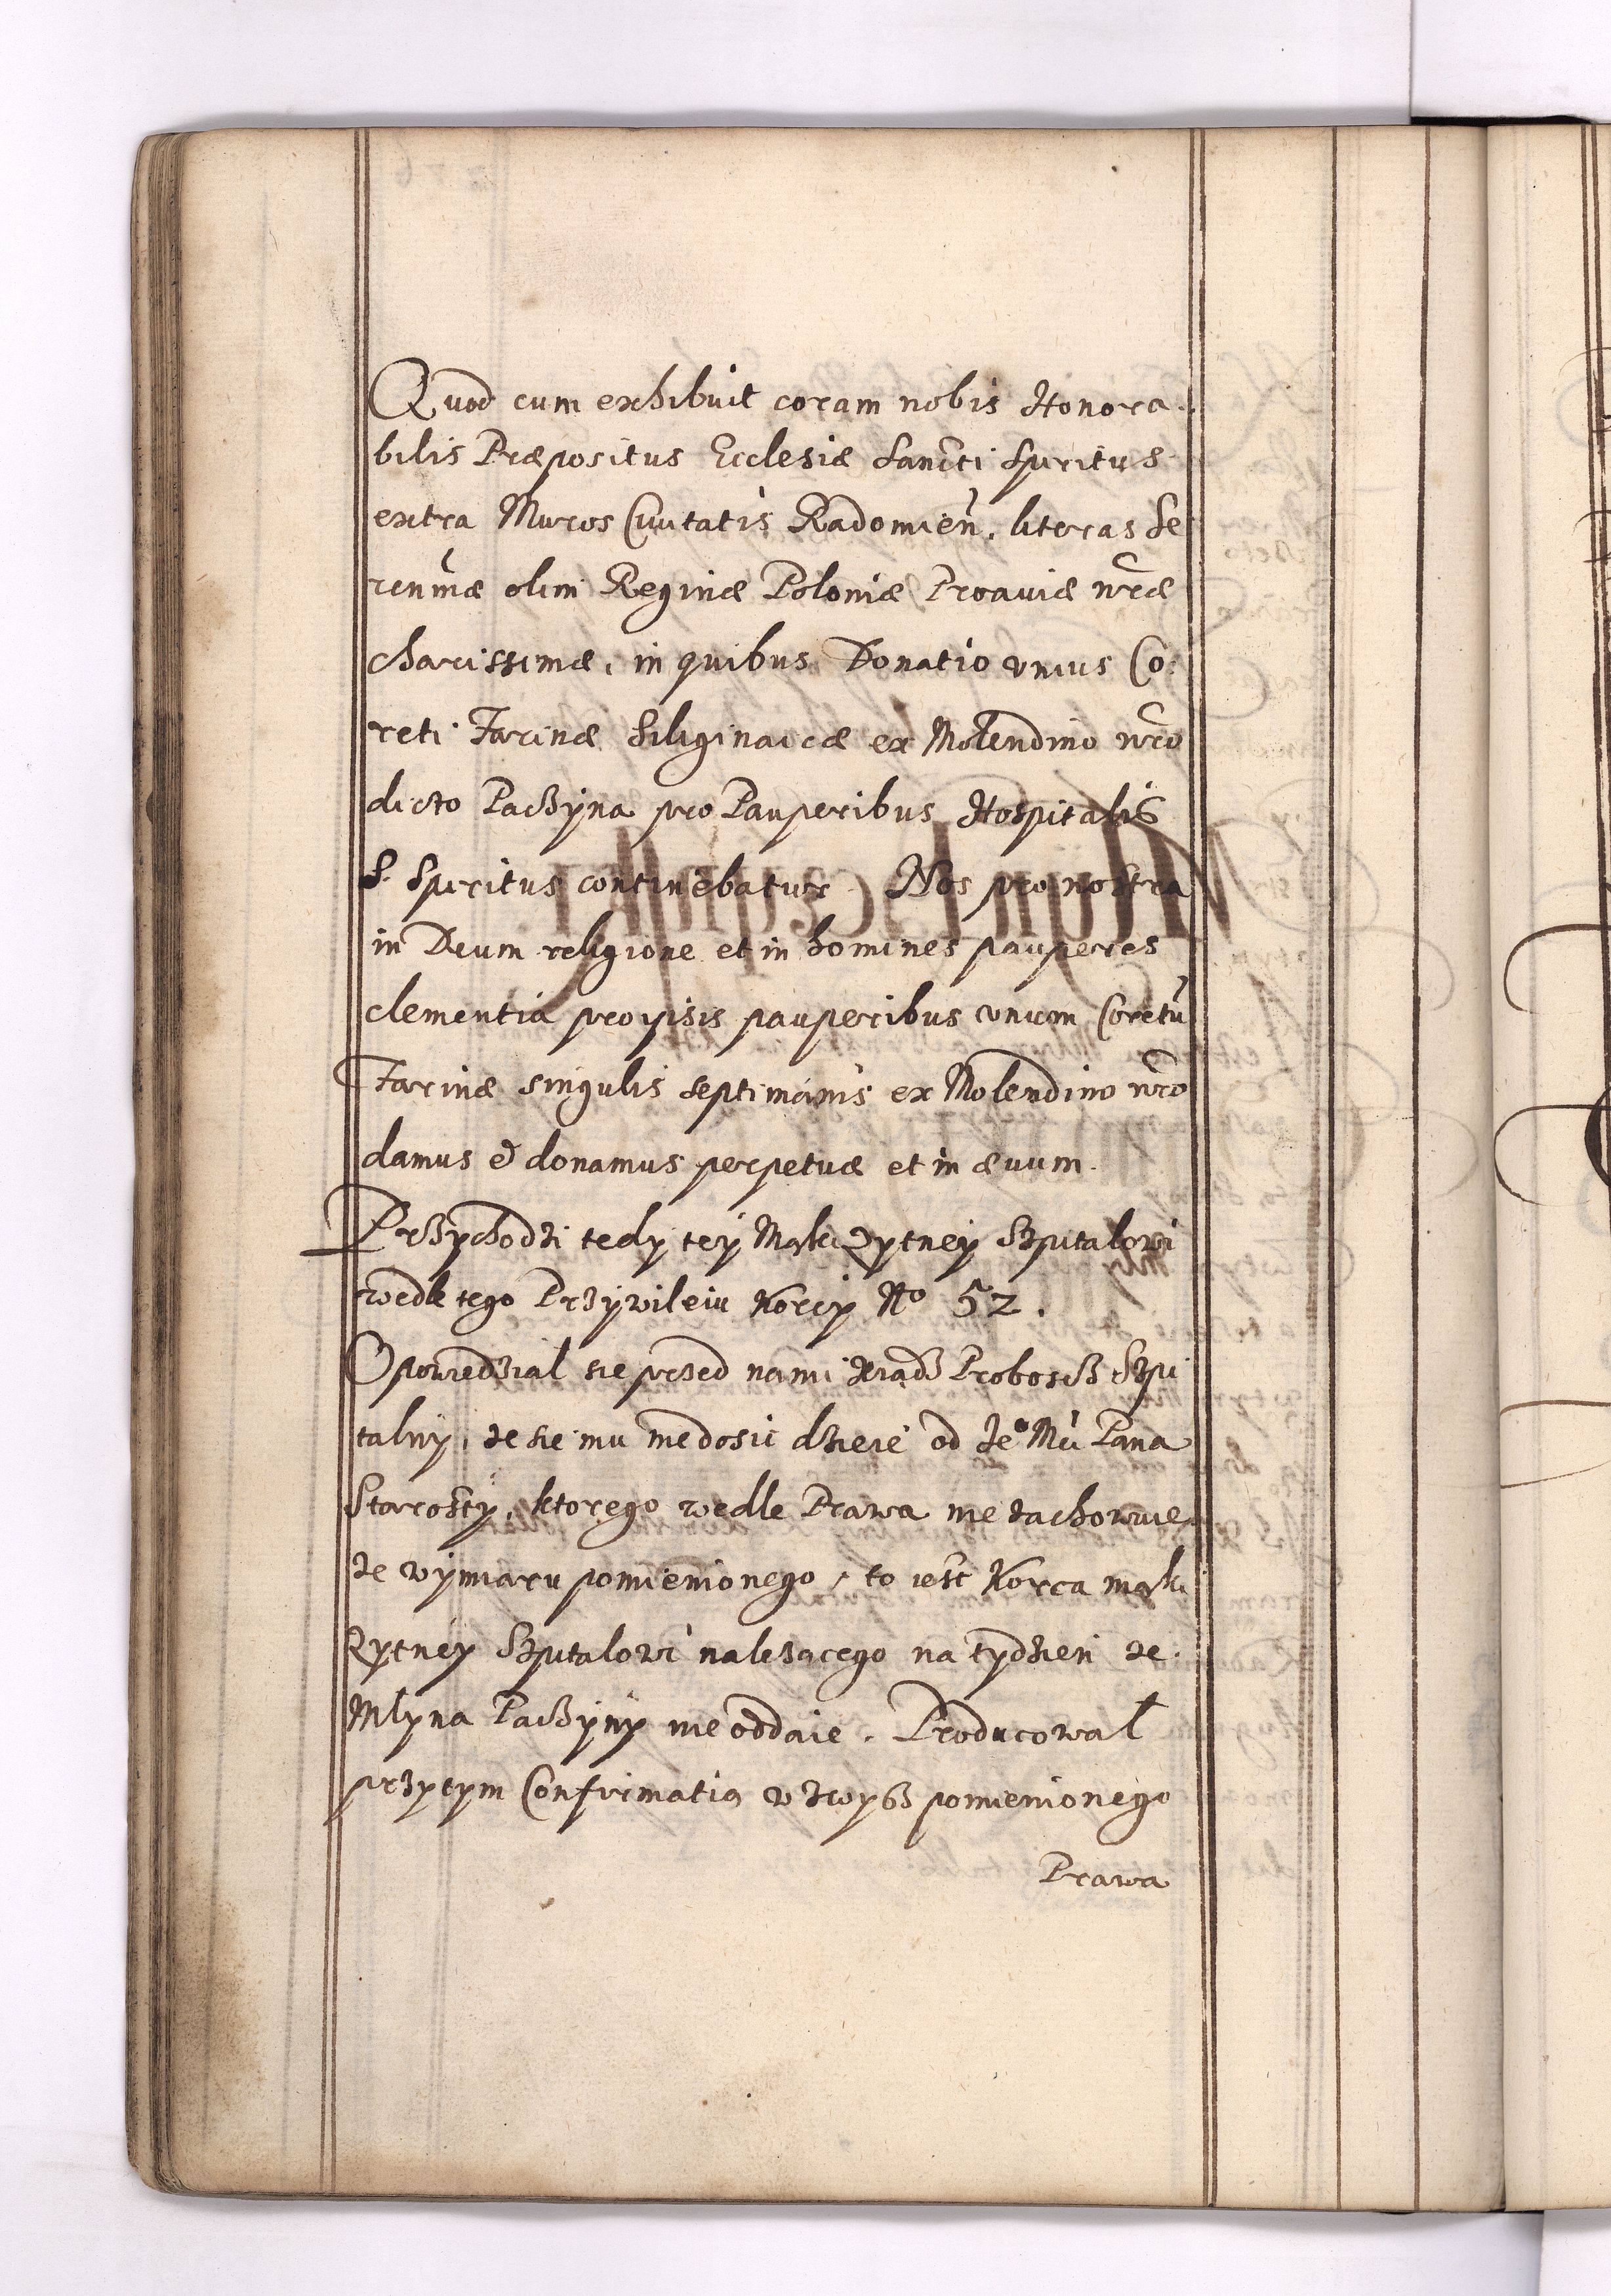 Quod cum exhibuit coram nobis Honora-
bilis Præpositus Ecclesiæ Sancti Spiritus
extra Muros Civitatis Radomien̄. literas Se
ren̄mæ olim Reginæ Poloniæ Proauiæ nr̄æ
charissimæ, in quibus Donatio vnius Co:
reti Farinæ Siliginaicæ ex Molendino nr̄o
dicto Pacżyna pro Pauperibus Hospitalis
S. Spiritus continebatur. Nos pro nostra
in Deum religione et in homines pauperes
clementia pro ipsis pauperibus vnum Coretū
Farinæ singulis septimanis ex Molendino nr̄o
damus & donamus perpetuæ et in æuum.
Przychodzi tedy tey Mąki Zytney Szpitalowi
wedle tego Przywileiu Korcy No 52.
Opowiedzial sie przed nami Xiadz Proboscz Szpi
talny, ze sie mu niedosic dzieie od Jeo Mci Pana
Starosty, ktorego wedle Prawa nie zachowuie,
ze wymiaru pomienionego, to iest Korca mąki
Zytney Szpitalowi nalezącego na tydzien ze
Mlyna Paczyny nie oddaie. Producowal
przytym Confirmatią vzwysz pomienionego
Prawa